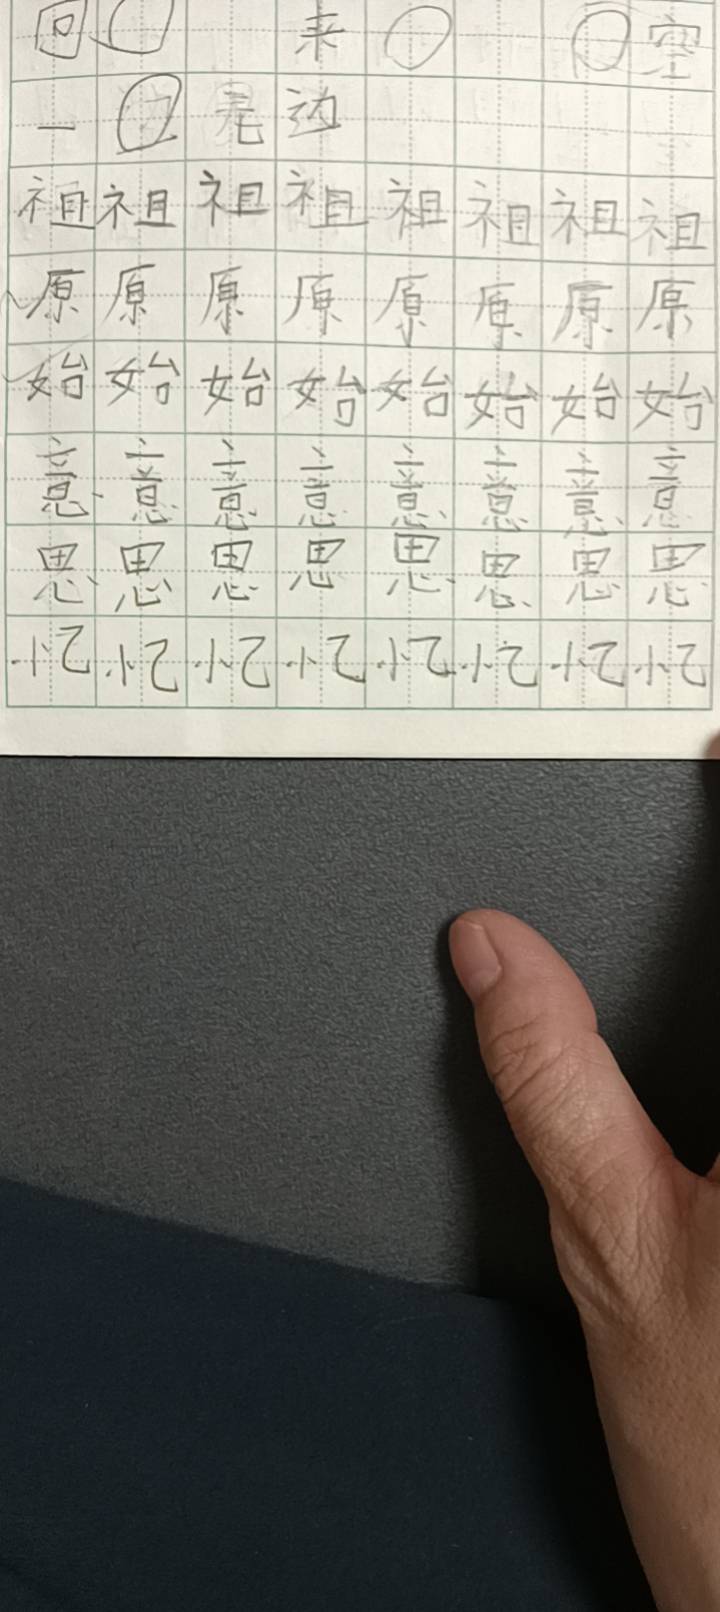 回 来 空
一 边
祖 祖 祖 祖 祖 祖 祖 祖
原 原 原 原 原 原 原 原
始 始 始 始 始 始 始 始
意 意 意 意 意 意 意 意
思 思 思 思 思 思 思 思
忆 忆 忆 忆 忆 忆 忆 忆